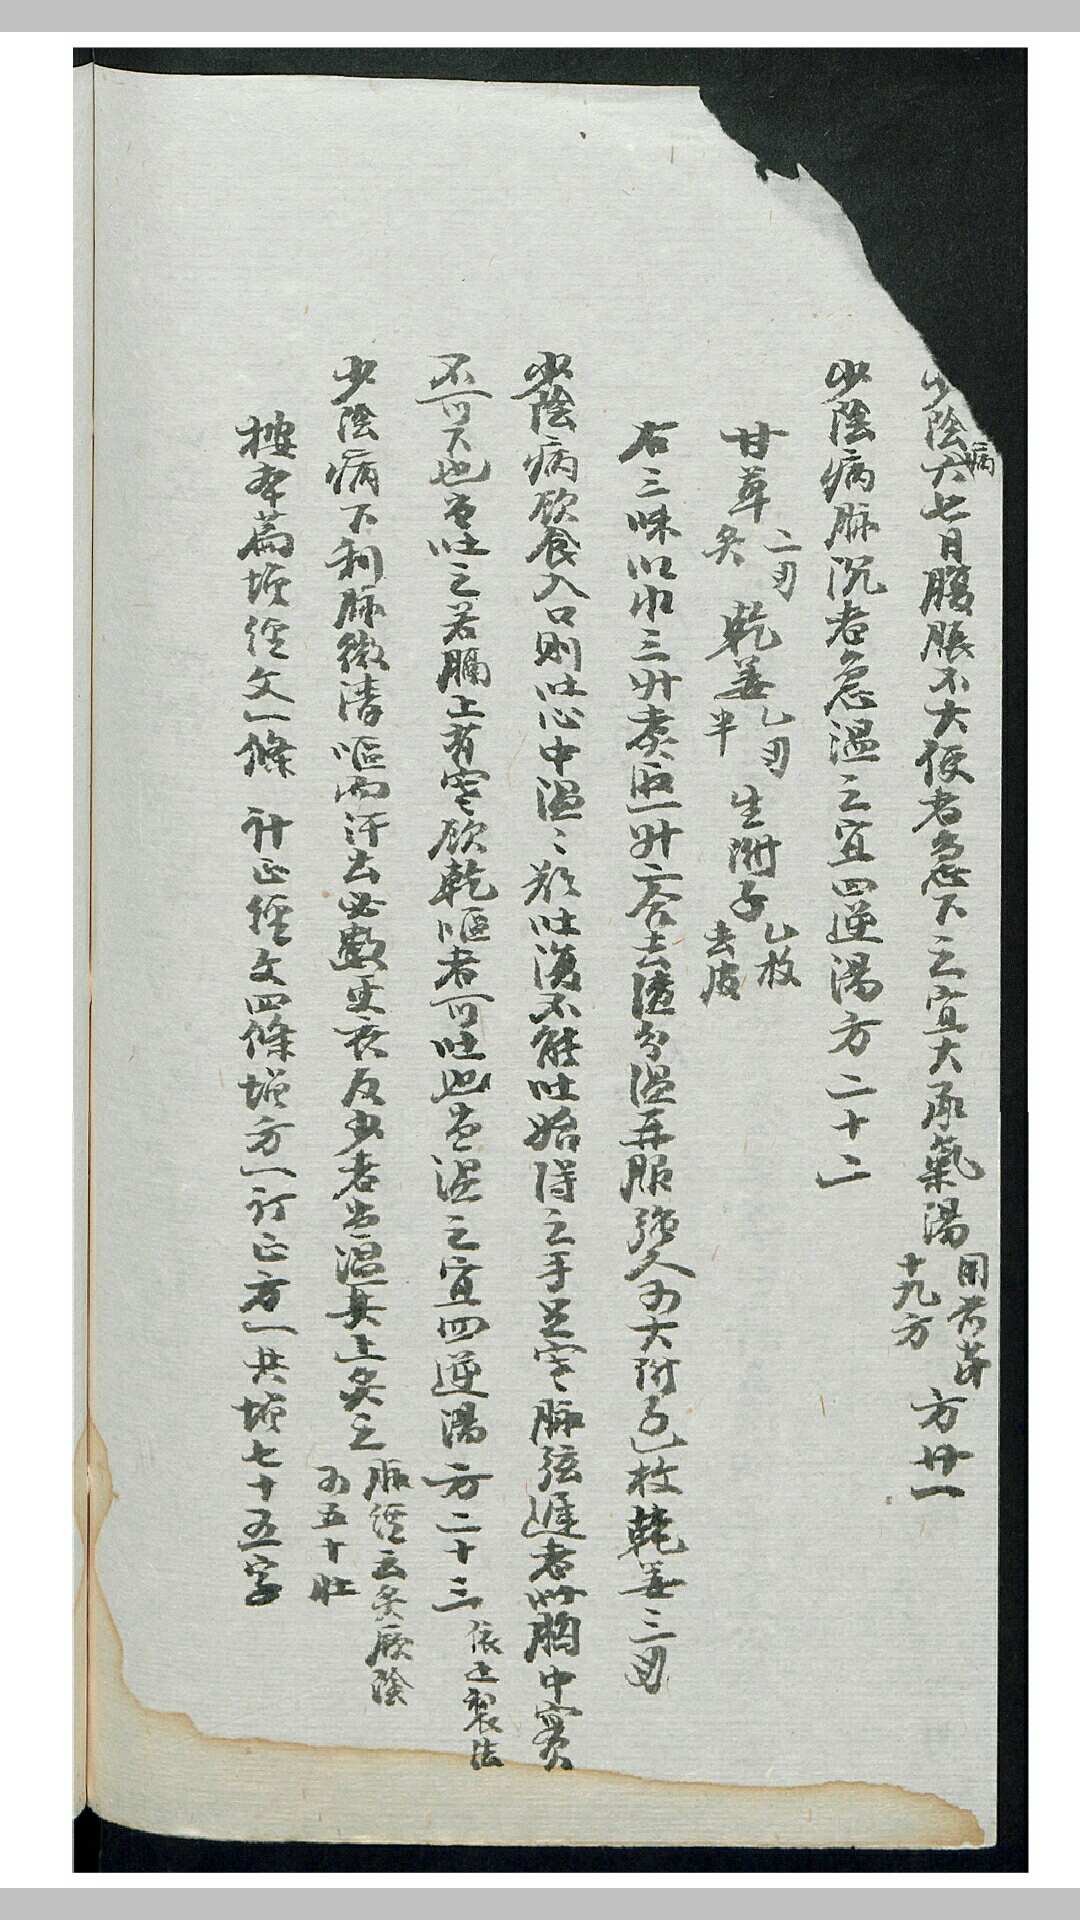 少陰病六七日腹脹不大便者急下之宜大承氣湯用前第十九方方廿一
少陰病脉沉者急温之宜四逆湯方二十二
甘草二两炙乾姜乙两半生附子乙枚去皮
右三味以水三升煑取一升二合去渣分温再服強人可大附子乙枚乾姜三两
少陰病飲食入口則吐心中温〻欲吐復不能吐始得之手足寒脉弦遲者此胸中實
不可下也当吐之若膈上有寒飲乾嘔者不可吐也当温之宜四逆湯方二十三依上製法
少陰病下利脉微濇嘔而汗出必數更衣反少者当温其上灸之脉經云灸厥陰可五十壯
按本篇增經文一條 計正經文四條增方一訂正方一共增七十五字